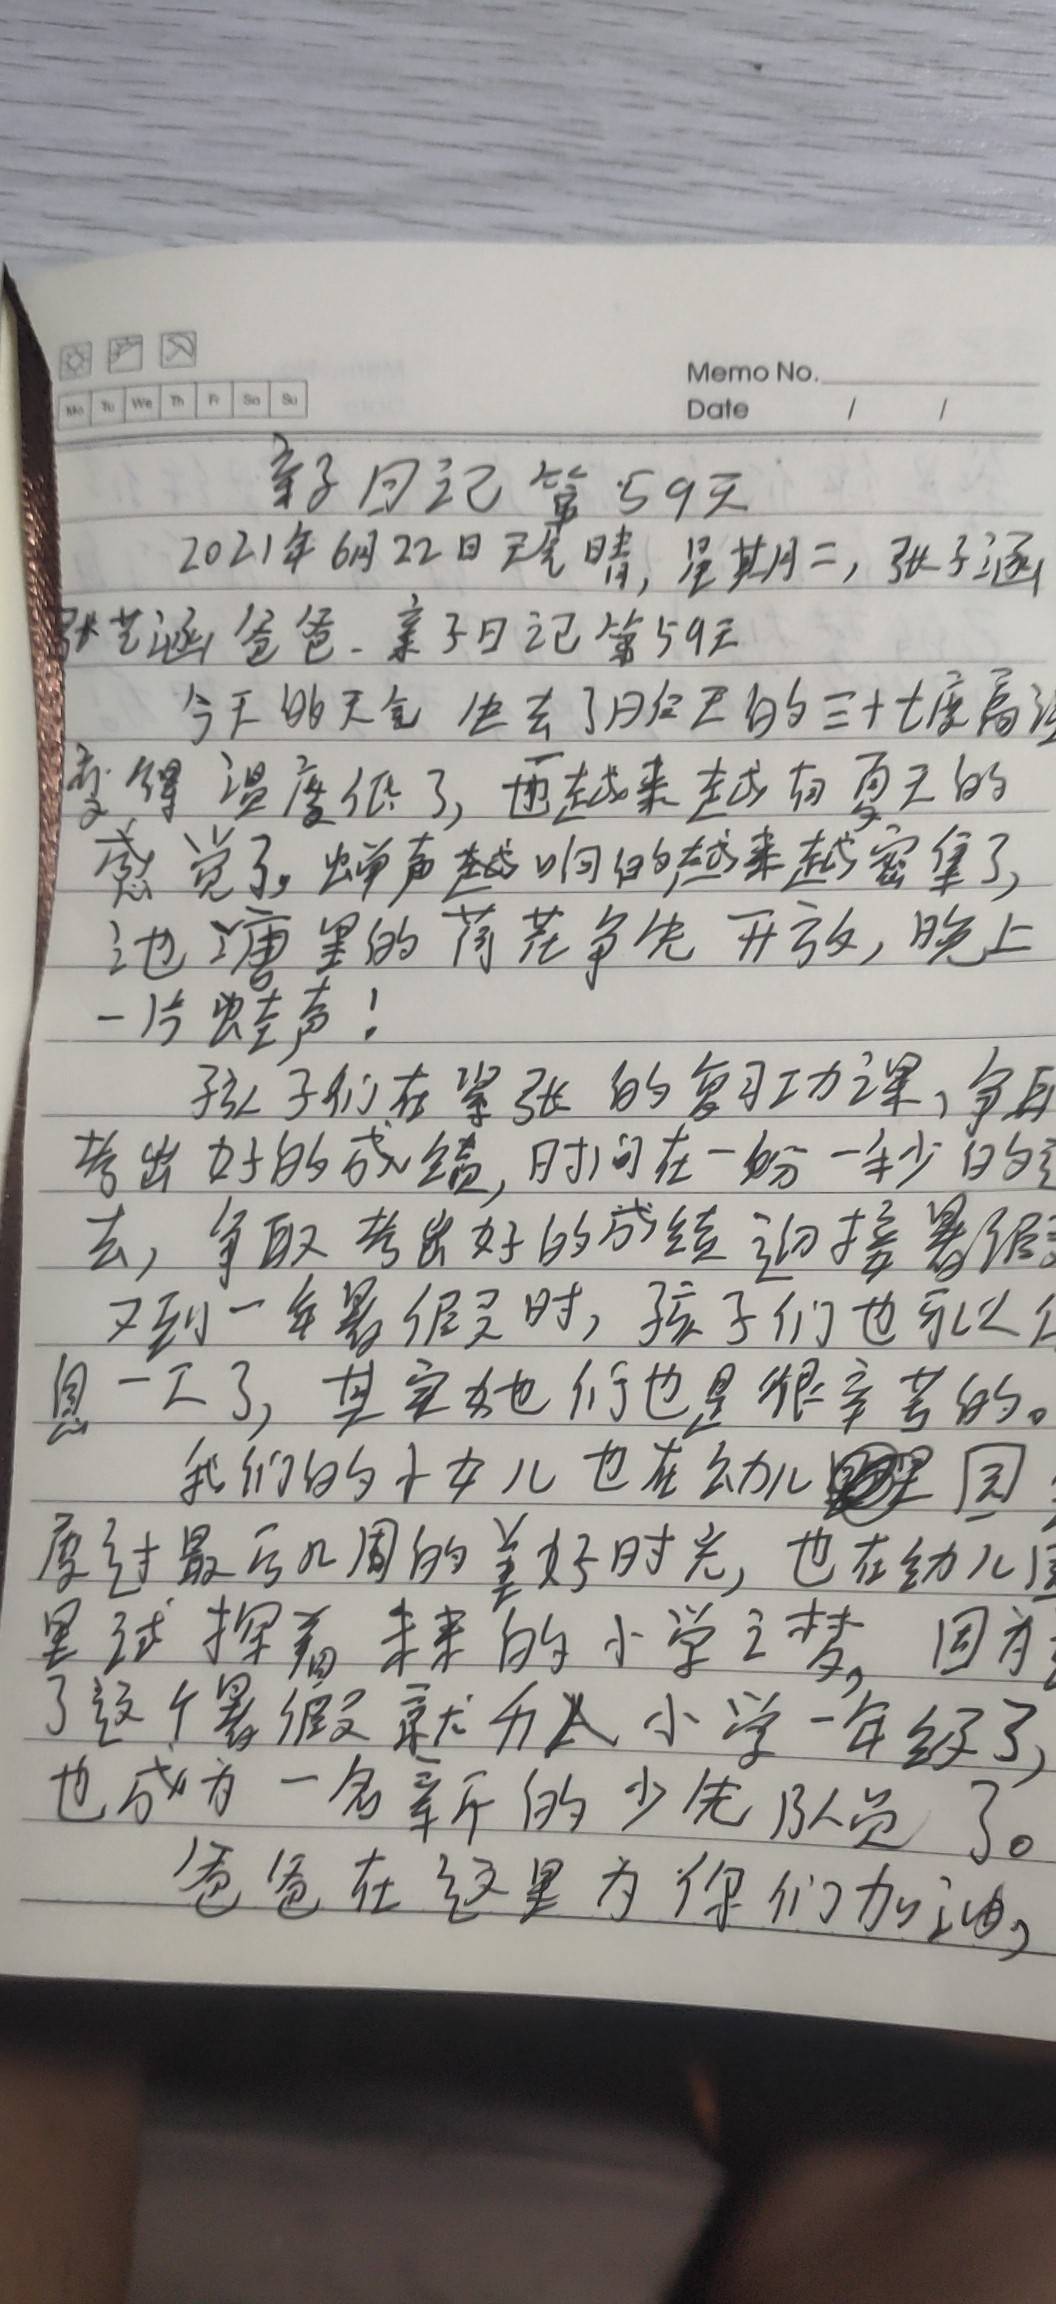 Mo Tu We Th Fr Sa Su
Memo No.
Date / /
亲子日记第59天
2021年6月22日天气晴,星期二,张子涵
张艺涵爸爸.亲子日记第59天
今天的天气 去了 天的三十七度高温
变得温度低了,也越来越有夏天的
感觉了。蝉声越响的越来越密集了,
池塘里的荷花争先开放,晚上
一片蛙声!
孩子们在紧张的复习功课、争取
考出好的成绩,时间在一份一秒的过
去,争取考出好的成绩迎接暑假
又到一年暑假时,孩子们也可以休
息一下了,其实她们也是很辛苦的。
我们的小女儿也在幼儿园
度过最后几周的美好时光,也在幼儿园
里试探着未来的小学之梦,因为
了这个暑假就升入小学一年级了,
也成为一名新的少先队员了。
爸爸在这里为你们加油,